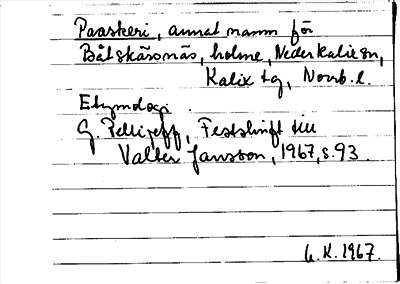 Paaskeri, annat namn för
Båtskärsnäs, holme, Nederkalix sn,
Kalix tg, Norrb. l.
Etymologi.
G. Pellijeff, Festskrift till
Valter Jansson, 1967, s. 93.
U.K. 1967.